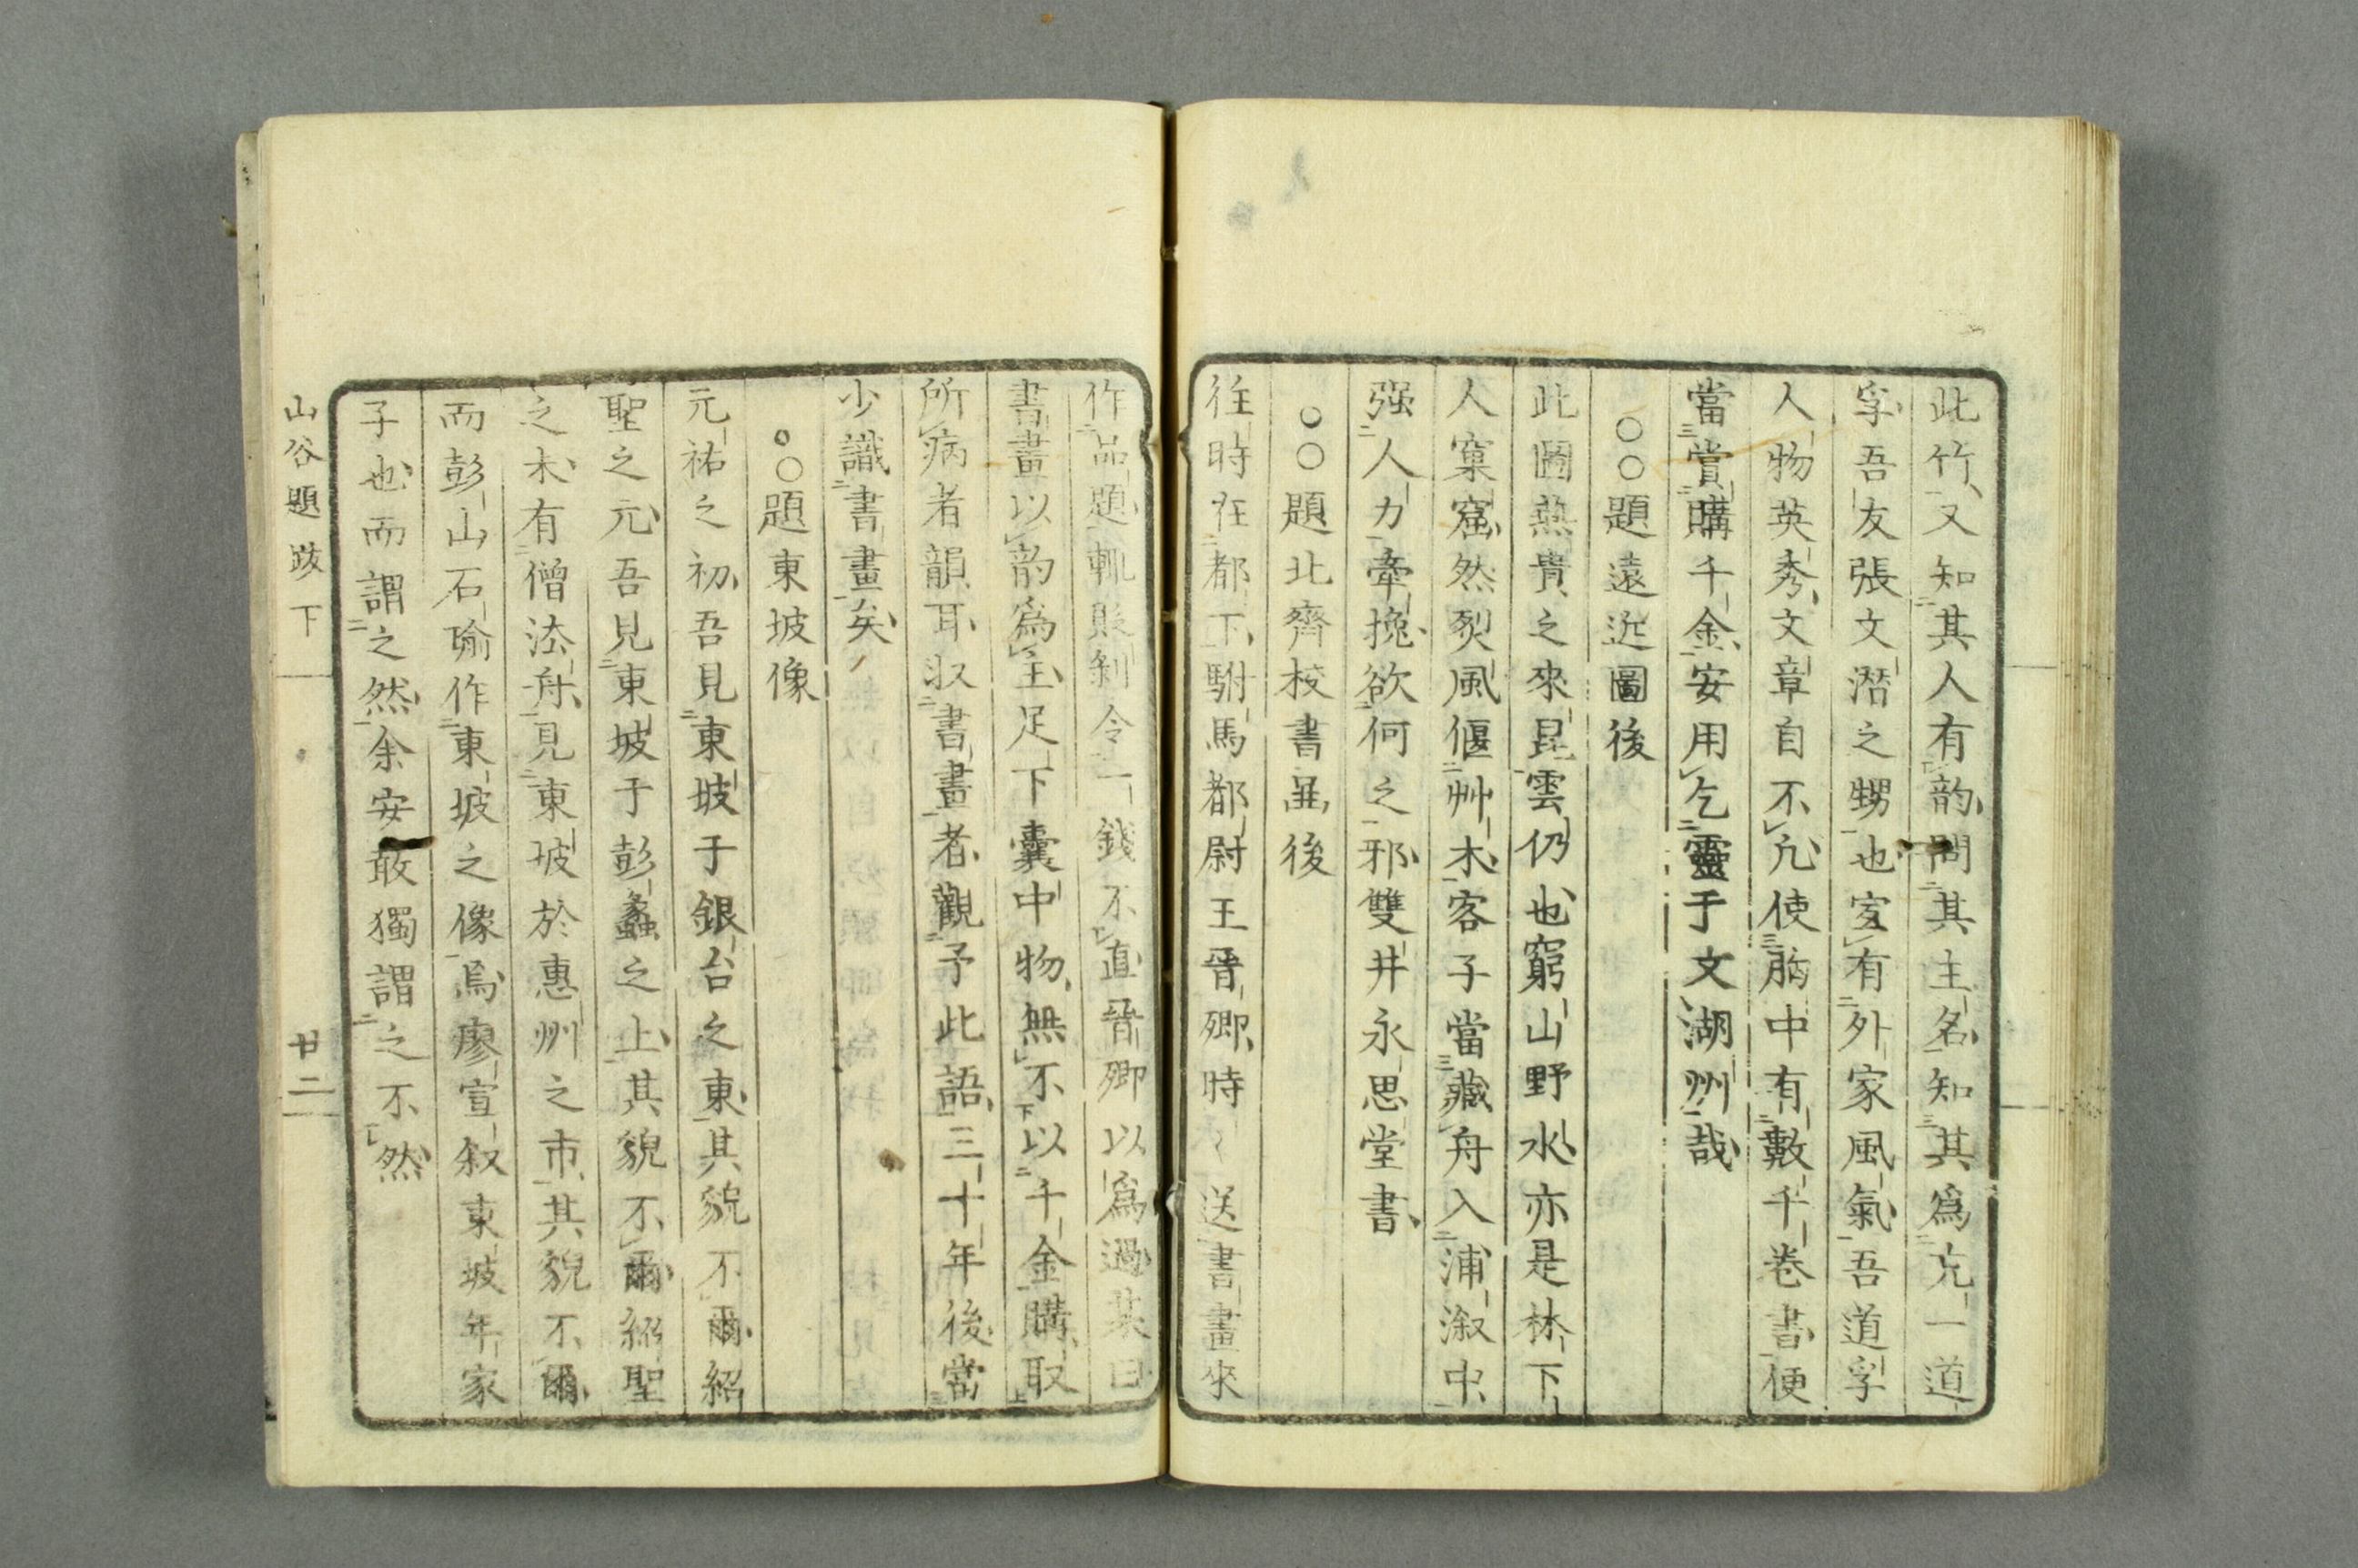 此竹又知其人有韵問其主名知其爲克一道
孚吾友張文潛之甥也寔有外家風氣吾道孚
人物英秀文章自不凡使胸中有數千卷書便
當賞購千金安用乞靈于文湖州哉
○○題遠近圖後
此圖燕貴之來昆雲仍也窮山野水亦是林下
人窠窟然烈風偃艸木客子當藏舟入浦漵中
强人力牽挽欲何之邪雙井永思堂書
○○題北齊校書圖後
往時在都下駙馬都尉王晉卿時〻送書畫來
作品題輒貶剝令一錢不直晉卿以爲過某曰
書畫以韵爲主足下囊中物無不以千金購取
所病者韻耳收書畫者觀予此語三十年後當
少識書畫矣
○○題東坡像
元祐之初吾見東坡于銀台之東其貌不爾紹
聖之元吾見東坡于彭蠡之上其貌不爾紹聖
之末有僧法舟見東坡於惠州之市其貌不爾
而彭山石瑜作東坡之像爲廖宣叙東坡年家
子也而謂之然余安敢獨謂之不然
山谷題跋下
廿二